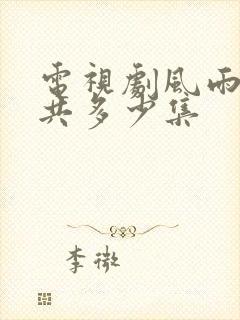 電視劇風雨
共多少集
李微